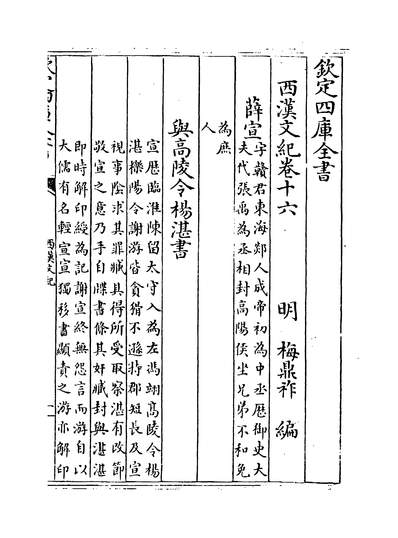 欽定四庫全書
西漢文紀卷十六
明 梅鼎祚 編
薛宣字贛君東海郯人成帝初為中丞歷御史大
夫代張禹為丞相封高陽侯坐兄弟不和免
為庶
人
與高陵令楊湛書
宣歷臨淮陳留太守入為左馮翊高陵令楊
湛櫟陽令謝游皆貪猾不遜持郡短長及宣
視事陰求其罪臧具得所受取察湛有改節
敬宣之意乃手自牒書條其奸臧封與湛湛
即時解印綬為記謝宣終無怨言而游自以
大儒有名輕宣宣獨移書顯責之游亦解印
西漢文紀